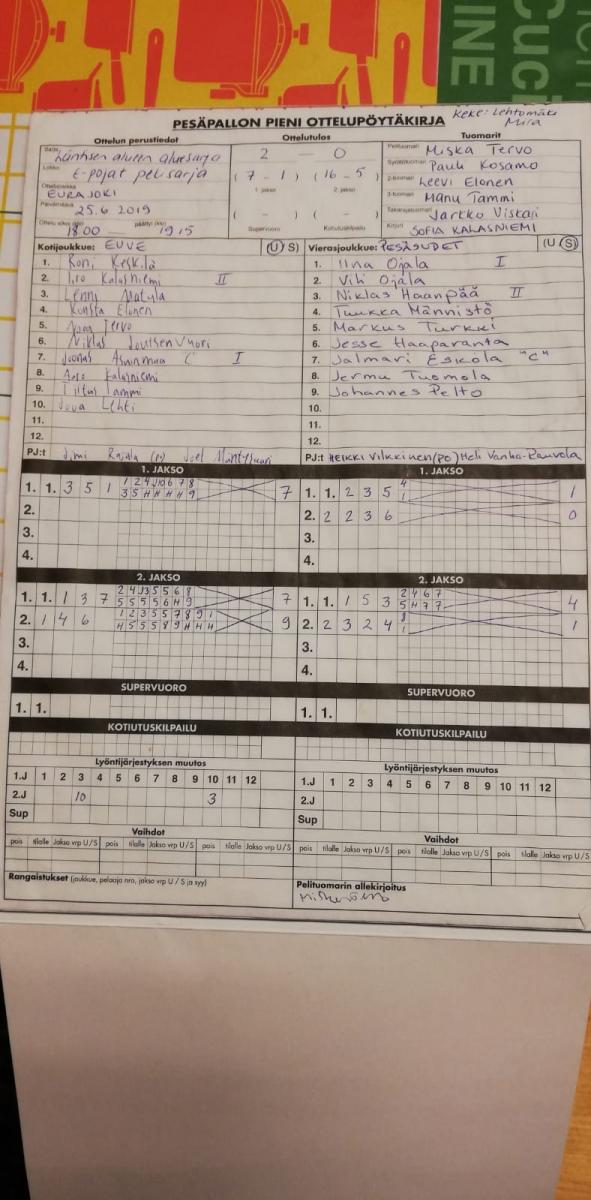 PESÄPALLON PIENI OTTELUPÖYTÄKIRJA
Keke: Lehtomäki
Mira
Ottelun perustiedot Ottelutulos Tuomarit
Sarja Läntisen alueen aluesarja 2 - 0 Pelituomari Miska Tervo
Lohko E-pojat pelisarja (7 - 1) (16 - 5) Syöttötuomari Pauli Kosamo
1. jakso 2. jakso
Ottelupaikka EURAJOKI 2-tuomari Leevi Elonen
Päivämäärä 25.6 2019 ( - ) ( - ) 3-tuomari Manu Tammi
Takarajatuomari Jarkko Viskari
Ottelu alkoi (klo) 18:00 päättyi (klo) 19:15 Supervuoro Kotiutuskilpailu Kirjuri SOFIA KALASNIEMI
Kotijoukkue: EUVE (U S) Vierasjoukkue: PESÄSUDET (U S)
1. Roni Keskilä 1. Iina Ojala I
2. Kalasniemi II 2. Vili Ojala
3. Lenni 3. Niklas Haanpää II
4. Kunsta Elonen 4. Tuukka Männistö
5. Tervo 5. Markus Turkki
6. Niklas Joutsenvuori 6. Jesse Haaparanta
7. Joonas C I 7. Jalmari Eskola "C"
8. Aaro Kalasniemi 8. Jermu Tuomola
9. Tammi 9. Johannes Pelto
10. Lehti 10.
11. 11.
12. 12.
PJ:t Jimi Rajala Joel PJ:t HEIKKI VILKKINEN (PO) Heli Vanha-Rauvola
1. JAKSO 1. JAKSO
1. 1. 3 5 1 1 2 4 10 6 7 8 7 1. 1. 2 3 5 4 1
3 5 H H H H 9 1
2. 2. 2 2 3 6 0
3. 3.
4. 4.
2. JAKSO 2. JAKSO
1. 1. 1 3 7 2 4 3 5 5 6 8 7 1. 1. 1 5 3 2 4 6 7 4
5 5 5 5 6 H 9 5 H 7 7
2. 1 4 6 1 2 3 5 5 7 8 9 1 9 2. 2 3 2 4 8 1
H 5 5 5 8 9 H H H 1
3. 3.
4. 4.
SUPERVUORO SUPERVUORO
1. 1. 1. 1.
KOTIUTUSKILPAILU KOTIUTUSKILPAILU
Lyöntijärjestyksen muutos Lyöntijärjestyksen muutos
1.J 1 2 3 4 5 6 7 8 9 10 11 12 1.J 1 2 3 4 5 6 7 8 9 10 11 12
2.J 10 3 2.J
Sup Sup
Vaihdot Vaihdot
pois tilalle Jakso vrp U/S pois tilalle Jakso vrp U/S pois tilalle Jakso vrp U/S pois tilalle Jakso vrp U/S pois tilalle Jakso vrp U/S pois tilalle Jakso vrp U/S
Rangaistukset (joukkue, pelaaja nro, jakso vrp U / S ja syy) Pelituomarin allekirjoitus